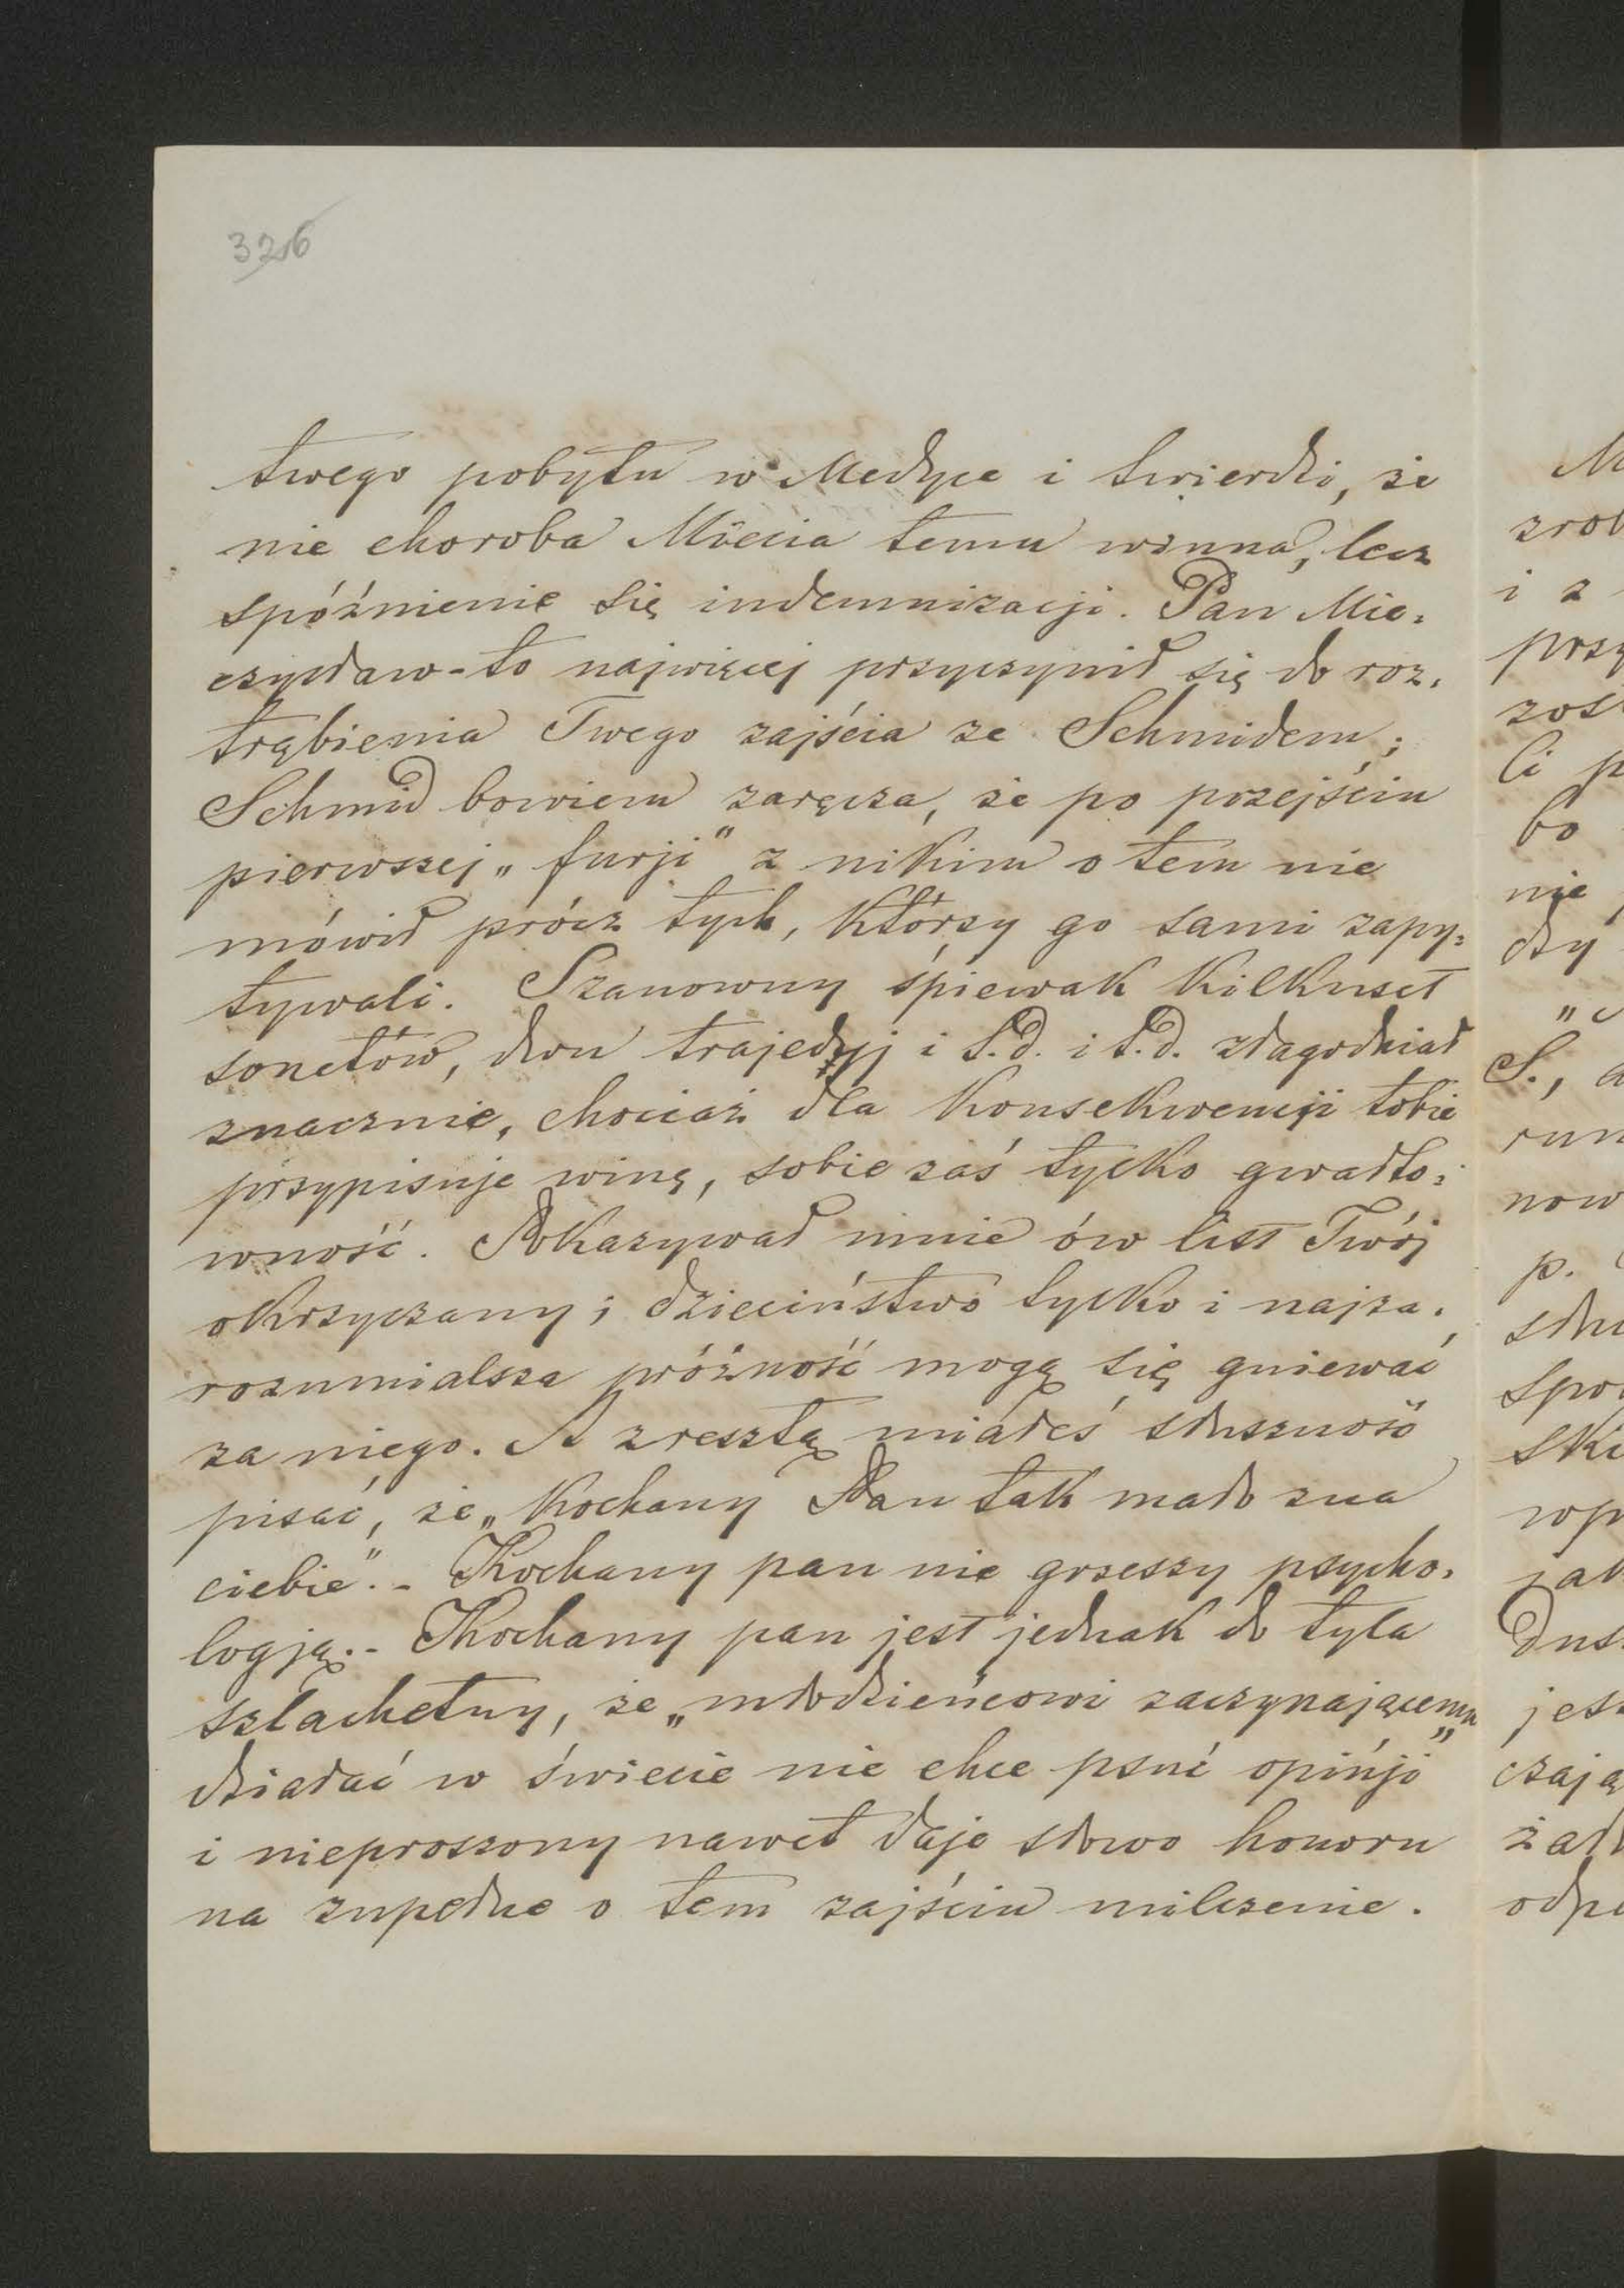 326
twego pobytu w Medyce i twierdzi, że
nie choroba Miecia temu winna, lecz
spóźnienie się indemnizacji. Pan Mie-
czysław-to najwięcej przyczynił się do roz-
trąbienia Twego zajścia ze Schmidem;
Schmid bowiem zaręcza, że po przejściu
pierwszej „furji" z nikim o tem nie
mówił prócz tych, którzy go sami zapy-
tywali. Szanowny śpiewak kilkuset
sonetów, dwu trajedyj i t.d. i t.d. złagodniał
znacznie, chociaż dla konsekwencji tobie
przypisuje winę, sobie zaś tylko gwałto-
wność. Pokazywał mnie ów list Twój
okrzyczany; dzieciństwo tylko i najza-
rozumialsza próżność mogą się gniewać
za niego. A zresztą miałeś słuszność
pisać, że „Kochany Pan tak mało zna
ciebie". - Kochany pan nie grzeszy psycho-
logją. - Kochany pan jest jednak do tyla
szlachetny, że „młodzieńcowi zaczynającemu
działać w świecie nie chce psuć opinji"
i nieproszony nawet daje słowo honoru
na zupełne o tem zajściu milczenie.